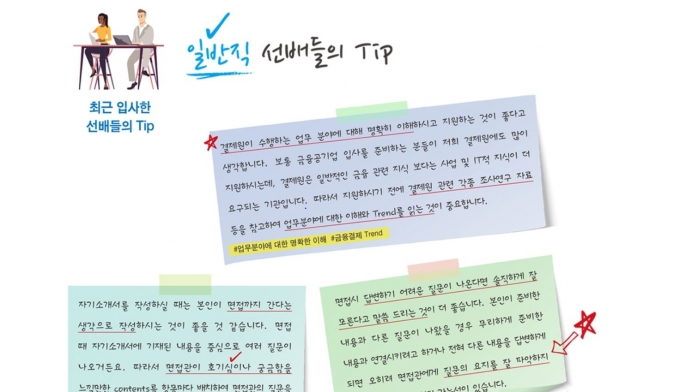 일반직 선배들의 Tip
최근 입사한
선배들의 Tip
결제원이 수행하는 업무 분야에 대해 명확히 이해하시고 지원하는 것이 좋다고
생각합니다. 보통 금융공기업 입사를 준비하는 분들이 저희 결제원에도 많이
지원하시는데, 결제원은 일반적인 금융 관련 지식 보다는 사업 및 IT적 지식이 더
요구되는 기관입니다. 따라서 지원하시기 전에 결제원 관련 각종 조사연구 자료
등을 참고하여 업무분야에 대한 이해와 Trend를 읽는 것이 중요합니다.
#업무분야에 대한 명확한 이해 #금융결제 Trend
자기소개서를 작성하실 때는 본인이 면접까지 간다는
생각으로 작성하시는 것이 좋을 것 같습니다. 면접
때 자기소개서에 기재된 내용을 중심으로 여러 질문이
나오거든요. 따라서 면접관이 호기심이나 궁금함을
느낄만한 contents를 항목마다 배치하여 면접관의 질문을
면접시 답변하기 어려운 질문이 나온다면 솔직하게 잘
모른다고 말씀 드리는 것이 더 좋습니다. 본인이 준비한
내용과 다른 질문이 나왔을 경우 무리하게 준비한
내용과 연결시키려고 하거나 전혀 다른 내용을 답변하게
되면 오히려 면접관에게 질문의 요지를 잘 파악하지